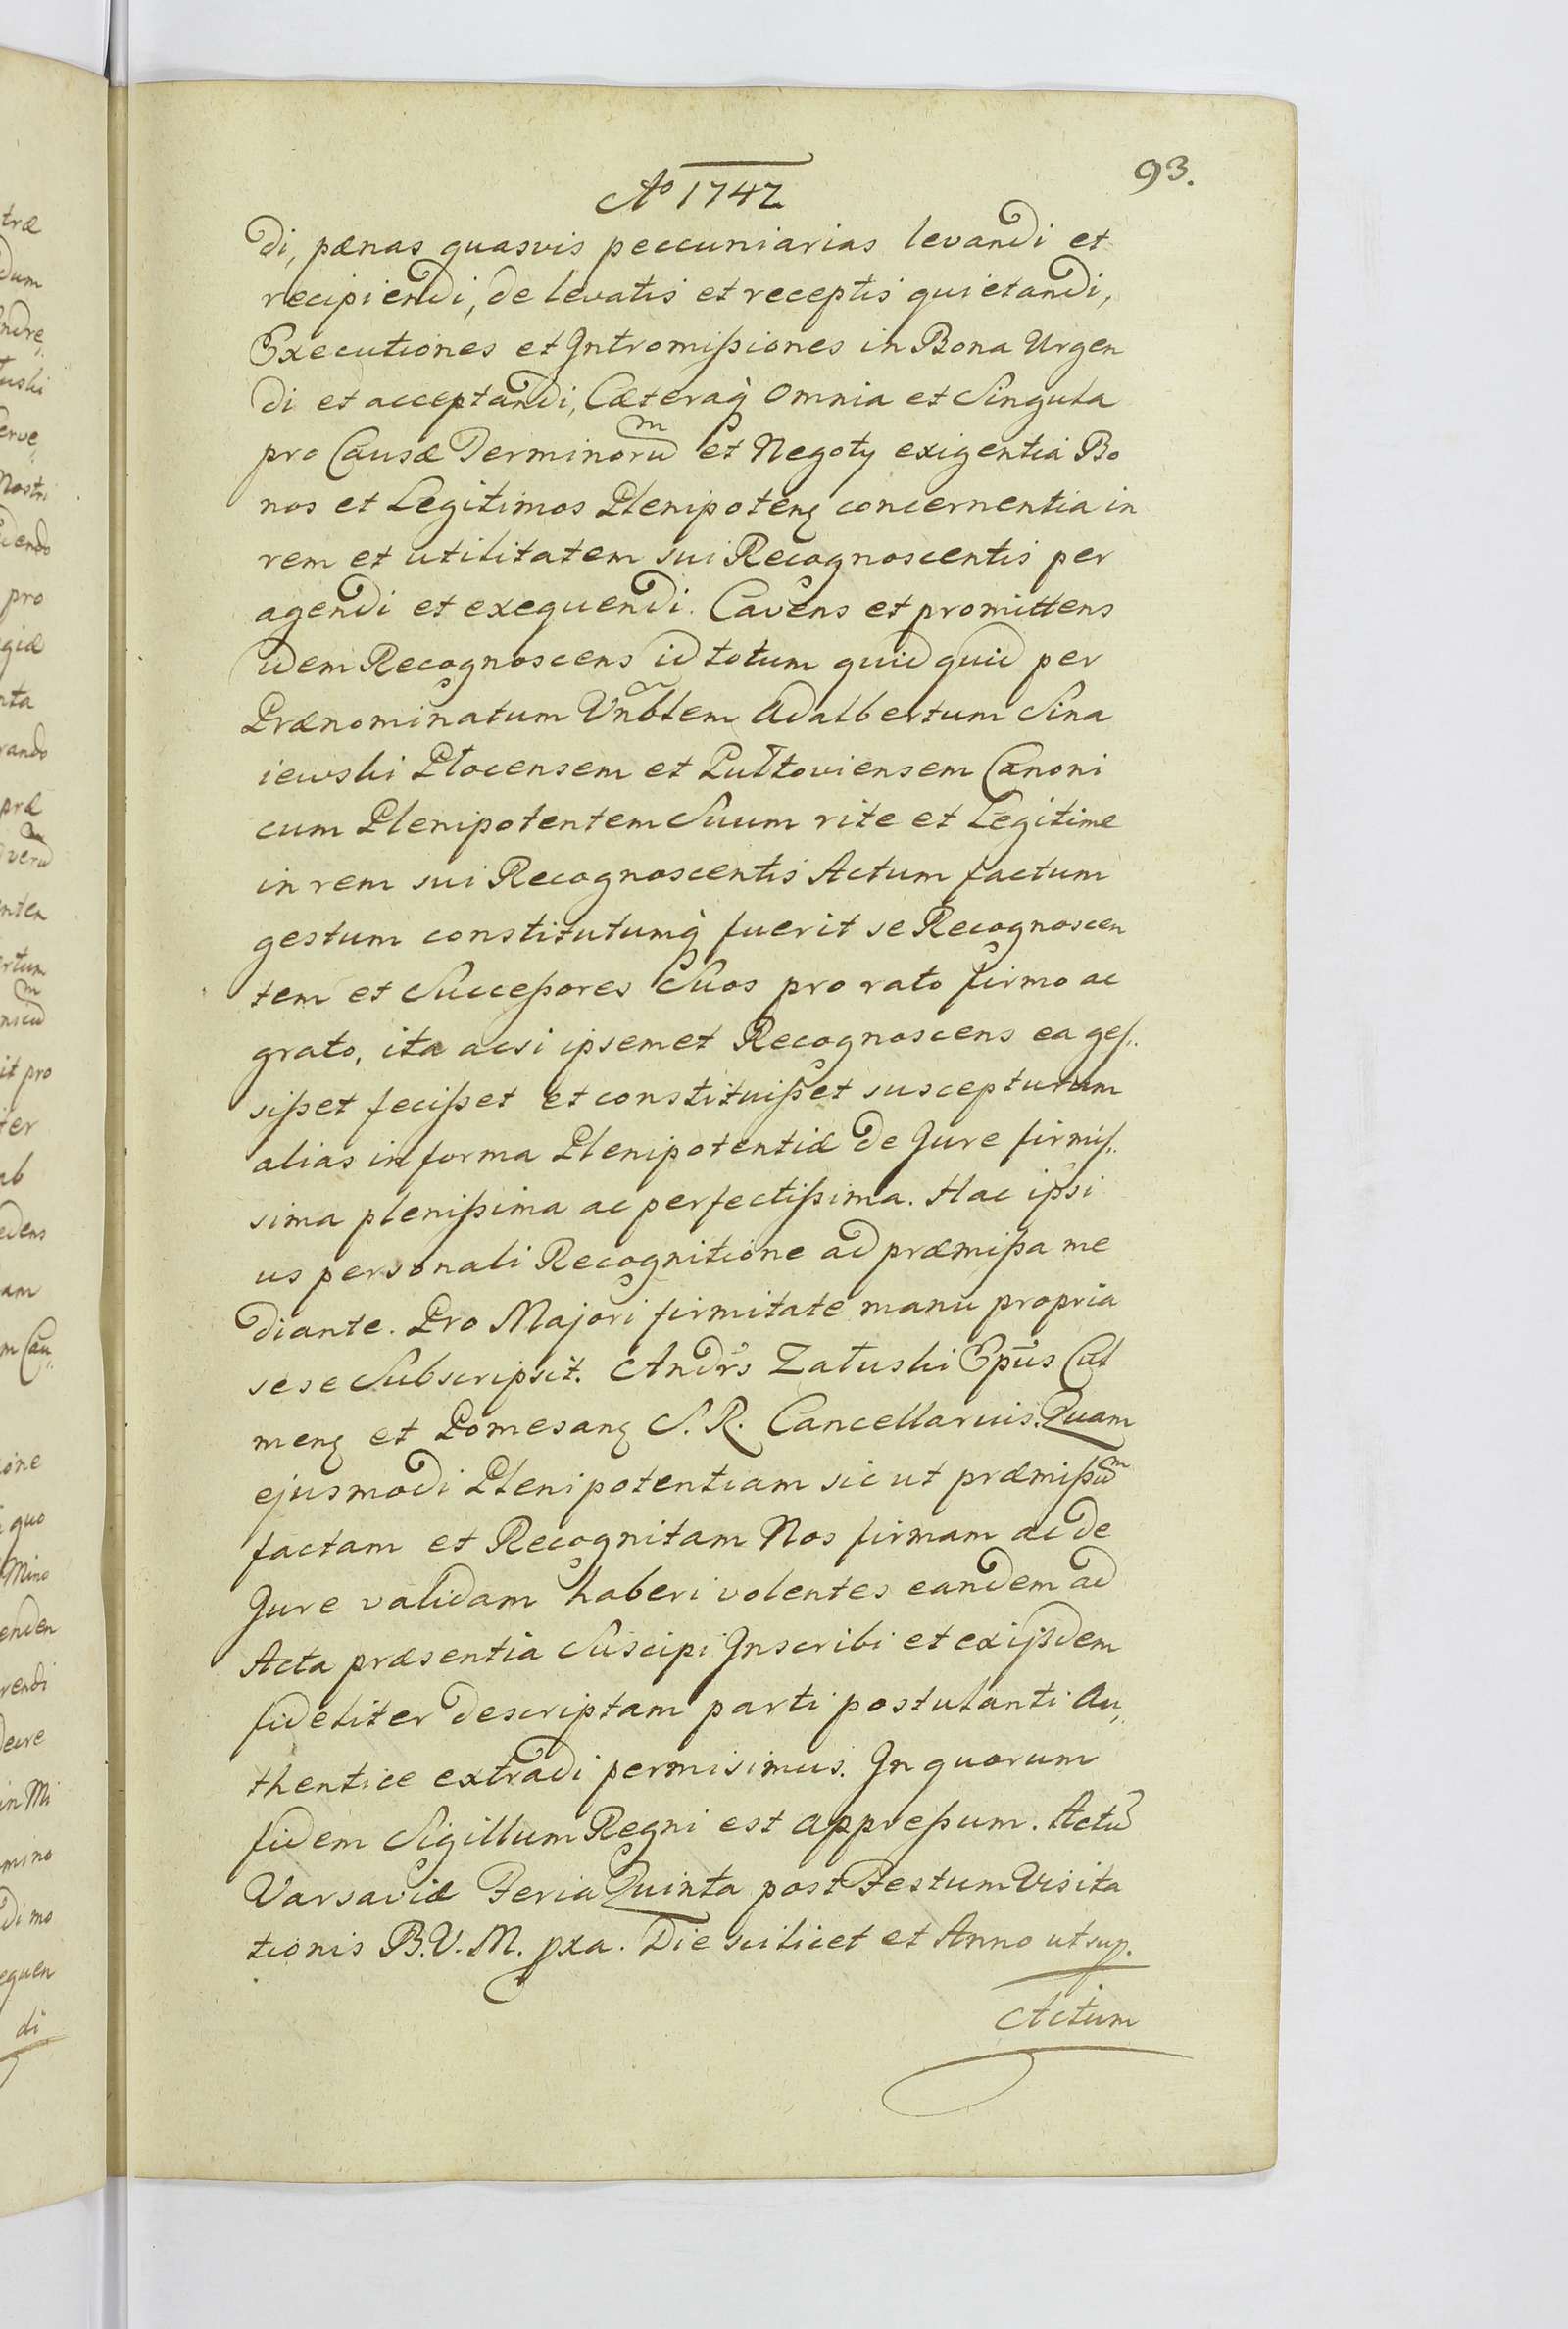 93.
Ao 1742
di, pænas quasvis peccuniarias levandi et
recipiendi, de levatis et receptis quietandi,
Executiones et Intromißiones in Bona Urgen
di et acceptandi, Cæteraq̀ omnia et Singula
pro Causæ Terminorum et Negoty exigentia Bo
nos et Legitimos Plenipotenȩ concernentia in
rem et utilitatem sui Recognoscentis per
agendi et exequendi. Cavens et promittens
idem Recognoscens id totum quidquid per
Prænominatum Vnblem Adalbertum Sina
iewski Płocensem et Pułtoviensem Canoni
cum Plenipotentem Suum rite et Legitime
in rem sui Recognoscentis Actum factum
gestum constitutumq̀ fuerit se Recognoscen
tem et Succeßores Suos pro rato firmo ac
grato, ita acsi ipsemet Recognoscens ea geſ„
sißet fecißet et constituißet suscepturum
alias in forma Plenipotentiæ de Jure firmiſ„
sima plenißima ac perfectißima. Hac ipsi
us personali Recognitione ad præmißa me
diante. Pro Majori firmitate manu propria
sese Subscripsit. Andrs Załuski Epus Cul
menȩ et Pomesanȩ S. R. Cancellarius. Quam
ejusmodi Plenipotentiam sic ut præmißum
factam et Recognitam Nos firmam ac de
Jure validam haberi volentes eandem ad
Acta præsentia Suscipi Inscribi et ex ijsdem
fideliter descriptam parti postulanti Au„
thentice extradi permisimus. In quorum
fidem Sigillum Regni est appreßum. Actu
Varsaviæ Feria Quinta post Festum Visita
tionis B. V. M. pxa. Die scilicet et Anno ut sup.
Actum